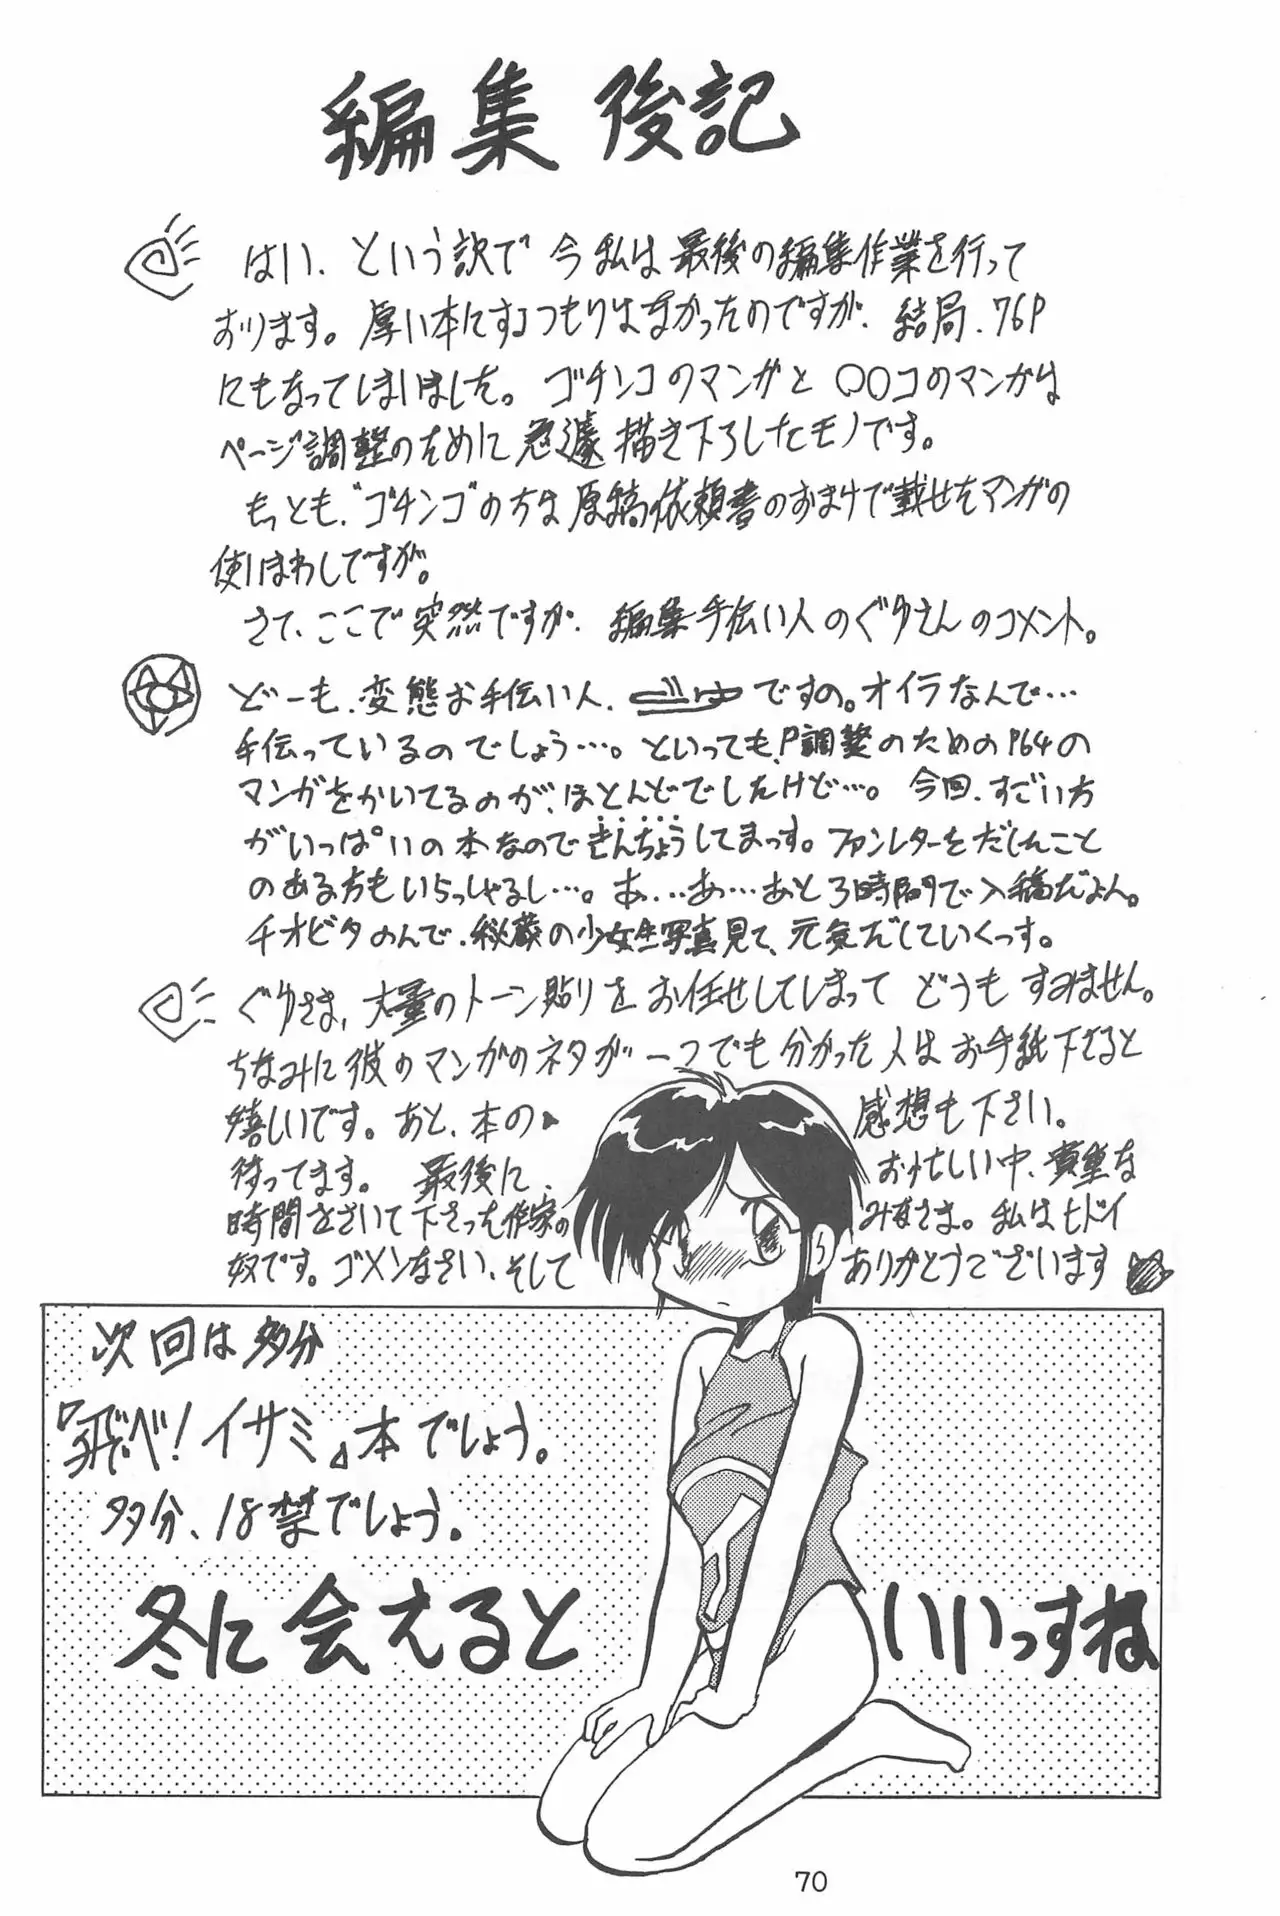 編集後記
はい、という訳で今私は最後の編集作業を行って
おります。厚い本にするつもりはなかったのですが、結局、76P
にもなってしまいました。ゴチンコのマンガと〇〇コのマンガは
ページ調整のために急遽描き下ろしたモノです。
もっとも、"ゴチンコ"の方は原稿依頼書のおまけで載せたマンガの
使いまわしですが。
さて、ここで突然ですが、編集手伝い人のぐりゅさんのコメント。
どーも、変態お手伝い人、ですの。オイラなんで…
手伝っているのでしょう…。といっても、P調整のためのP64の
マンガをかいてるのが、ほとんどでしたけど…。今回、すごい方
がいっぱいの本なのできんちょうしてまっす。ファンレターをだしたこと
のある方もいらっしゃるし…。あ…あ…あと3時間で入稿だよん。
チオビタのんで、秘蔵の少女生写真見て、元気だしていくっす。
さま、大量のトーン貼りをお任せしてしまってどうもすみません。
ちなみに彼のマンガのネタが一つでも分かった人はお手紙下さると
嬉しいです。あと、本の感想も下さい。
待ってます。最後に、お忙しい中、貴重な
時間をさいて下さった作家のみなさま。私はヒドイ
奴です。ゴメンなさい、そしてありがとうございます
次回は多分
『飛べ!イサミ』本でしょう。
多分、18禁でしょう。
冬に会えるといいっすね
70